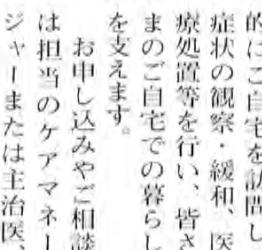 的にご自宅を訪問し
症状の観察・緩和、医
療処置等を行い、皆さ
まのご自宅での暮らし
を支えます。
お申し込みやご相談
は担当のケアマネー
ジャーまたは主治医、